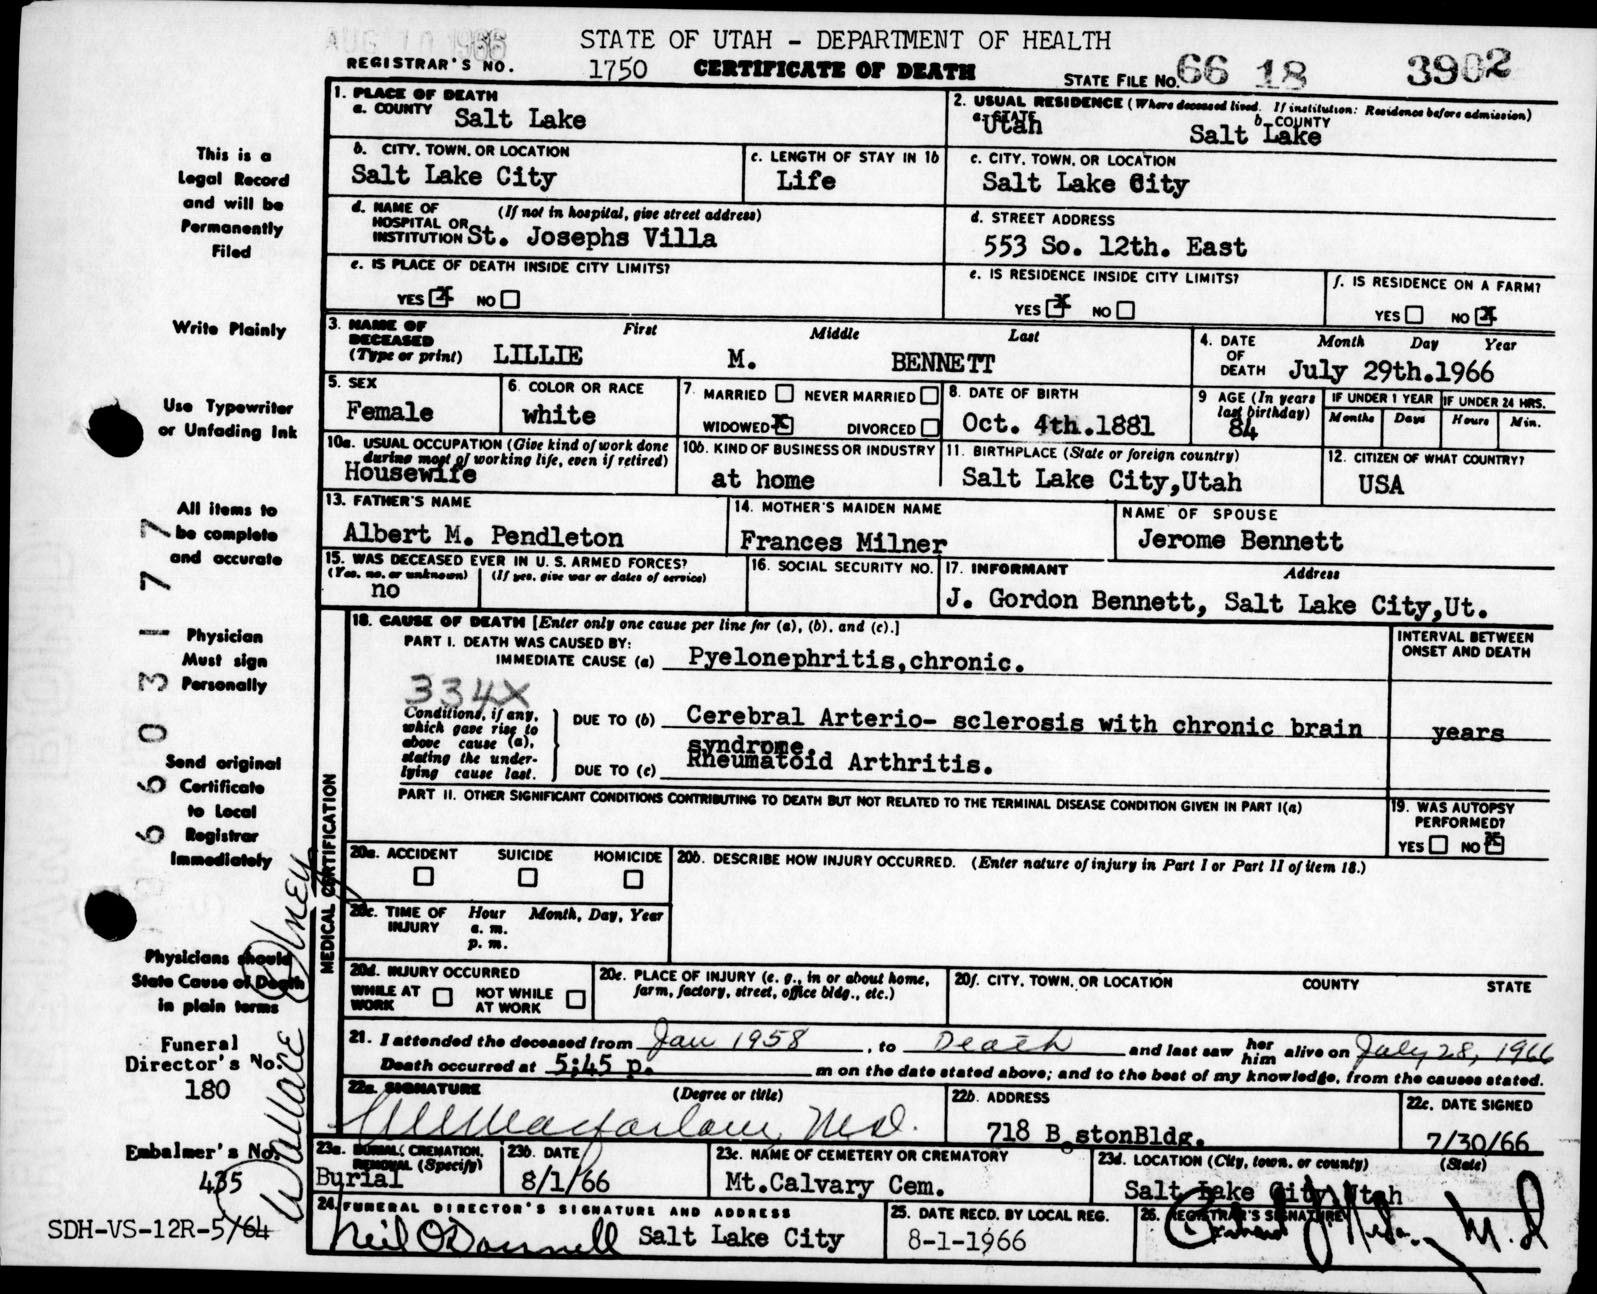 AUG 10 1966
STATE OF UTAH - DEPARTMENT OF HEALTH
REGISTRAR'S NO. 1750 CERTIFICATE OF DEATH STATE FILE NO. 66 18 3902
1. PLACE OF DEATH
a. COUNTY Salt Lake
2. USUAL RESIDENCE (Where deceased lived. If institution: Residence before admission)
a. STATE Utah b. COUNTY Salt Lake
b. CITY, TOWN, OR LOCATION Salt Lake City
c. LENGTH OF STAY IN 1b Life
c. CITY, TOWN, OR LOCATION Salt Lake City
d. NAME OF HOSPITAL OR INSTITUTION (If not in hospital, give street address) St. Josephs Villa
d. STREET ADDRESS 553 So. 12th. East
e. IS PLACE OF DEATH INSIDE CITY LIMITS?
YES X NO
e. IS RESIDENCE INSIDE CITY LIMITS?
YES X NO
f. IS RESIDENCE ON A FARM?
YES NO X
3. NAME OF DECEASED (Type or print) First Middle Last
LILLIE M. BENNETT
4. DATE OF DEATH Month Day Year
July 29th.1966
5. SEX Female
6. COLOR OR RACE white
7. MARRIED NEVER MARRIED
WIDOWED X DIVORCED
8. DATE OF BIRTH Oct. 4th.1881
9 AGE (In years last birthday) 84
IF UNDER 1 YEAR Months Days
IF UNDER 24 HRS. Hours Min.
10a. USUAL OCCUPATION (Give kind of work done during most of working life, even if retired) Housewife
10b. KIND OF BUSINESS OR INDUSTRY at home
11. BIRTHPLACE (State or foreign country) Salt Lake City,Utah
12. CITIZEN OF WHAT COUNTRY? USA
13. FATHER'S NAME Albert M. Pendleton
14. MOTHER'S MAIDEN NAME Frances Milner
NAME OF SPOUSE Jerome Bennett
15. WAS DECEASED EVER IN U. S. ARMED FORCES?
(Yes, no, or unknown) (If yes, give war or dates of service)
no
16. SOCIAL SECURITY NO.
17. INFORMANT Address
J. Gordon Bennett, Salt Lake City,Ut.
MEDICAL CERTIFICATION
18. CAUSE OF DEATH [Enter only one cause per line for (a), (b), and (c).]
INTERVAL BETWEEN ONSET AND DEATH
PART I. DEATH WAS CAUSED BY:
IMMEDIATE CAUSE (a) Pyelonephritis,chronic.
334X
Conditions, if any, which gave rise to above cause (a), stating the underlying cause last.
DUE TO (b) Cerebral Arterio- sclerosis with chronic brain syndrome. years
DUE TO (c) Rheumatoid Arthritis.
PART II. OTHER SIGNIFICANT CONDITIONS CONTRIBUTING TO DEATH BUT NOT RELATED TO THE TERMINAL DISEASE CONDITION GIVEN IN PART I(a)
19. WAS AUTOPSY PERFORMED?
YES NO X
20a. ACCIDENT SUICIDE HOMICIDE
20b. DESCRIBE HOW INJURY OCCURRED. (Enter nature of injury in Part I or Part II of item 18.)
20c. TIME OF INJURY Hour Month, Day, Year
a. m.
p. m.
20d. INJURY OCCURRED
WHILE AT WORK NOT WHILE AT WORK
20e. PLACE OF INJURY (e. g., in or about home, farm, factory, street, office bldg., etc.)
20f. CITY, TOWN, OR LOCATION COUNTY STATE
21. I attended the deceased from Jan 1958, to Death and last saw her him alive on July 28, 1966
Death occurred at 5:45 p. m on the date stated above; and to the best of my knowledge, from the causes stated.
22a. SIGNATURE (Degree or title)
Macfarlane, M.D.
22b. ADDRESS 718 BostonBldg.
22c. DATE SIGNED 7/30/66
23a. BURIAL, CREMATION, REMOVAL (Specify) Burial
23b. DATE 8/1/66
23c. NAME OF CEMETERY OR CREMATORY Mt.Calvary Cem.
23d. LOCATION (City, town, or county) (State)
Salt Lake City Utah
24. FUNERAL DIRECTOR'S SIGNATURE AND ADDRESS
Neil O'Donnell Salt Lake City
25. DATE RECD. BY LOCAL REG. 8-1-1966
26. REGISTRAR'S SIGNATURE
M.D
This is a
Legal Record
and will be
Permanently
Filed
Write Plainly
Use Typewriter
or Unfading Ink
All items to
be complete
and accurate
Physician
Must sign
Personally
Send original
Certificate
to Local
Registrar
Immediately
Physicians should
State Cause of Death
in plain terms
Funeral
Director's No.
180
Embalmer's No.
435
SDH-VS-12R-5/64
66 03177
Wallace Olney